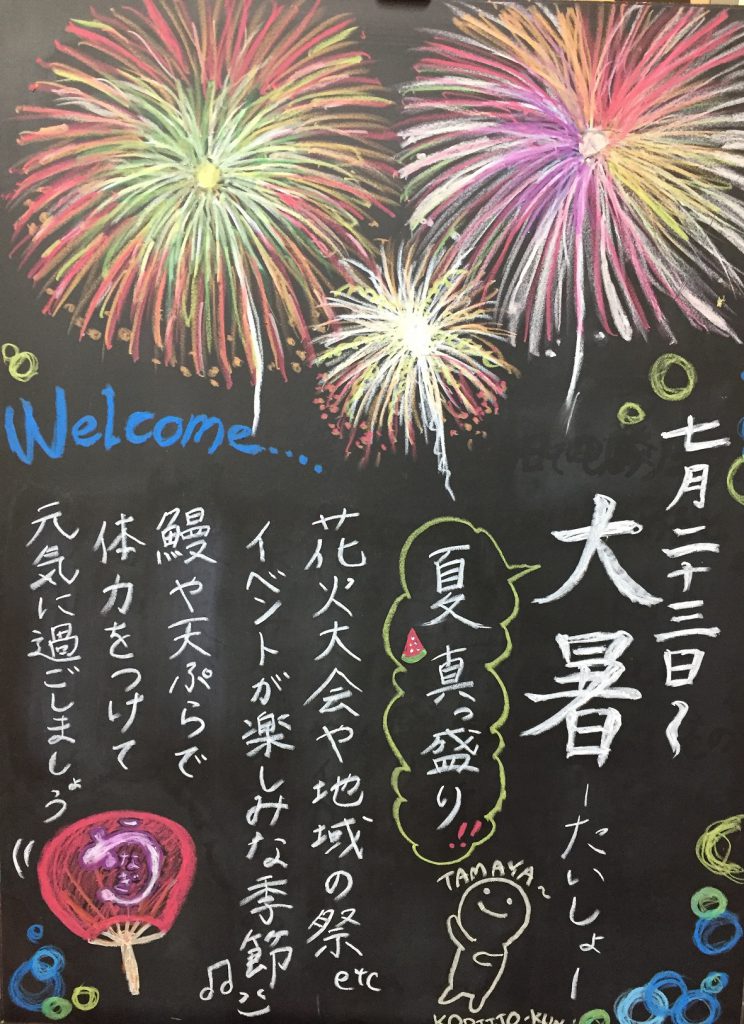 Welcome....
七月二十三日〜
大暑
-たいしょ-
夏真っ盛り!!
花火大会や地域の祭etc
イベントが楽しみな季節
鰻や天ぷらで
体力をつけて
元気に過ごしましょう
うなぎ
TAMAYA~